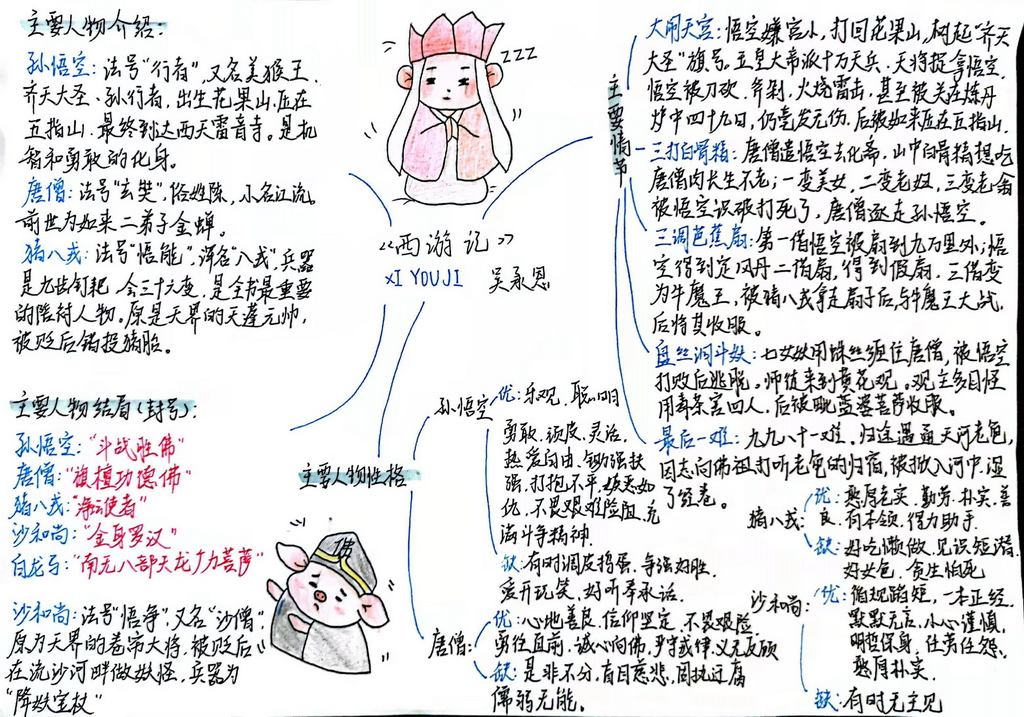 主要人物介绍:
孙悟空:法号"行者",又名美猴王、
齐天大圣、孙行者,出生花果山,压在
五指山,最终到达西天雷音寺。是机
智和勇敢的化身。
唐僧:法号"玄奘",俗姓陈,小名江流。
前世为如来二弟子金蝉。
猪八戒:法号"悟能",浑名"八戒",兵器
是九齿钉耙,会三十六变,是全书最重要
的陪衬人物。原是天界的天蓬元帅,
被贬后错投猪胎。
主要人物结局(封号):
孙悟空:"斗战胜佛"
唐僧:"旃檀功德佛"
猪八戒:"净坛使者"
沙和尚:"金身罗汉"
白龙马:"南无八部天龙广力菩萨"
沙和尚:法号"悟净",又名"沙僧",
原为天界的卷帘大将,被贬后
在流沙河畔做妖怪,兵器为
"降妖宝杖"
zzz
《西游记》
XI YOUJI 吴承恩
佛
主要情节
大闹天宫:悟空嫌官小,打回花果山,树起"齐天
大圣"旗号,玉皇大帝派十万天兵、天将捉拿悟空,
悟空被刀砍、斧剁、火烧雷击,甚至被关在炼丹
炉中四十九日,仍毫发无伤,后被如来压在五指山.
三打白骨精:唐僧遣悟空去化斋,山中白骨精想吃
唐僧肉长生不老;一变美女,二变老妪,三变老翁
被悟空识破打死了,唐僧逐走孙悟空。
三调芭蕉扇:第一借悟空被扇到九万里外;悟
空得到定风丹二借扇,得到假扇,三借变
为牛魔王,被猪八戒拿走扇子后与牛魔王大战,
后将其收服。
盘丝洞斗妖:七女妖用蛛丝缠住唐僧,被悟空
打败后逃脱。师徒来到黄花观。观主多目怪
用毒茶害四人,后被毗蓝婆菩萨收服。
最后一难:九九八十一难。归途遇通天河老龟,
因忘向佛祖打听老龟的归宿,被掀入河中,湿
了经卷。
主要人物性格
孙悟空
优:乐观、聪明
勇敢、顽皮、灵活,
热爱自由、锄强扶
强,打抱不平,嫉恶如
仇、不畏艰难险阻,充
满斗争精神.
缺:有时调皮捣蛋、争强好胜,
爱开玩笑、好听奉承话.
唐僧:
优:心地善良、信仰坚定、不畏艰险,
勇往直前,诚心向佛,严守戒律,义无反顾
缺:是非不分,盲目慈悲,固执迂腐
懦弱无能。
猪八戒:
优:憨厚老实、勤劳、朴实、善
良、有本领、得力助手.
缺:好吃懒做、见识短浅,
好女色、贪生怕死
沙和尚:
优:循规蹈矩,一本正经,
默默无言,小心谨慎,
明哲保身,任劳任怨,
憨厚朴实.
缺:有时无主见